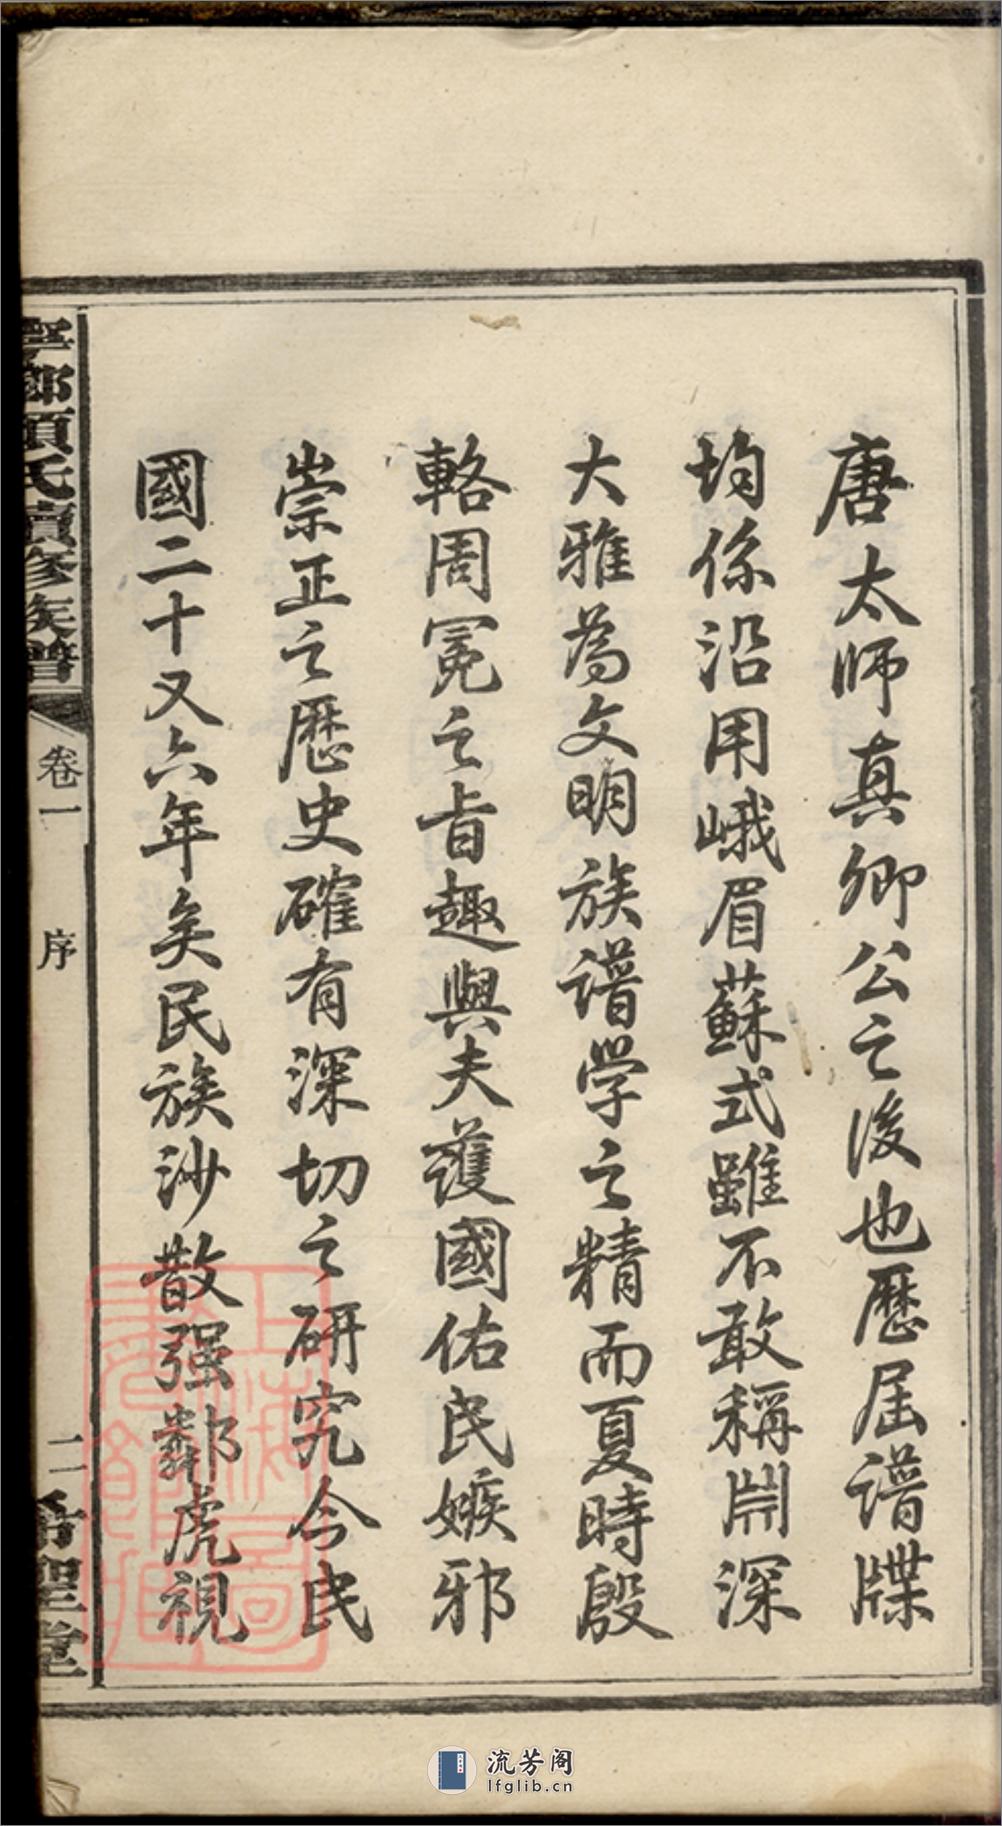 唐太師真卿公之後也歷屆譜牒
均係沿用峨眉蘇式雖不敢稱淵深
大雅為文明族譜学之精而夏時殷
輅周冕之旨趣與夫護國佑民嫉邪
崇正之歷史確有深切之研究今民
國二十又六年矣民族沙散强鄰虎視
氏續修族譜
卷一
序
二
聖堂
上海圖書館藏
流芳阁
lfglib.cn